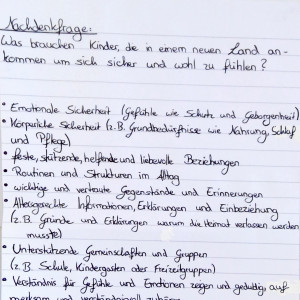 Nachdenkfrage:
Was brauchen Kinder, die in einem neuen Land an-
kommen um sich sicher und wohl zu fühlen?
• Emotionale Sicherheit (Gefühle wie Schutz und Geborgenheit)
• Körperliche Sicherheit (z.B. Grundbedürfnisse wie Nahrung, Schlaf
und Pflege)
• feste, stützende, helfende und liebevolle Beziehungen
• Routinen und Strukturen im Alltag
• wichtige und vertraute Gegenstände und Erinnerungen
• Altersgerechte Informationen, Erklärungen und Einbeziehung
(z.B. Gründe und Erklärungen warum die Heimat verlassen werden
musste)
• Unterstützende Gemeinschaften und Gruppen
(z.B. Schule, Kindergarten oder Freizeitgruppen)
• Verständnis für Gefühle und Emotionen zeigen und geduldig auf-
merksam und verständnisvoll zuhören